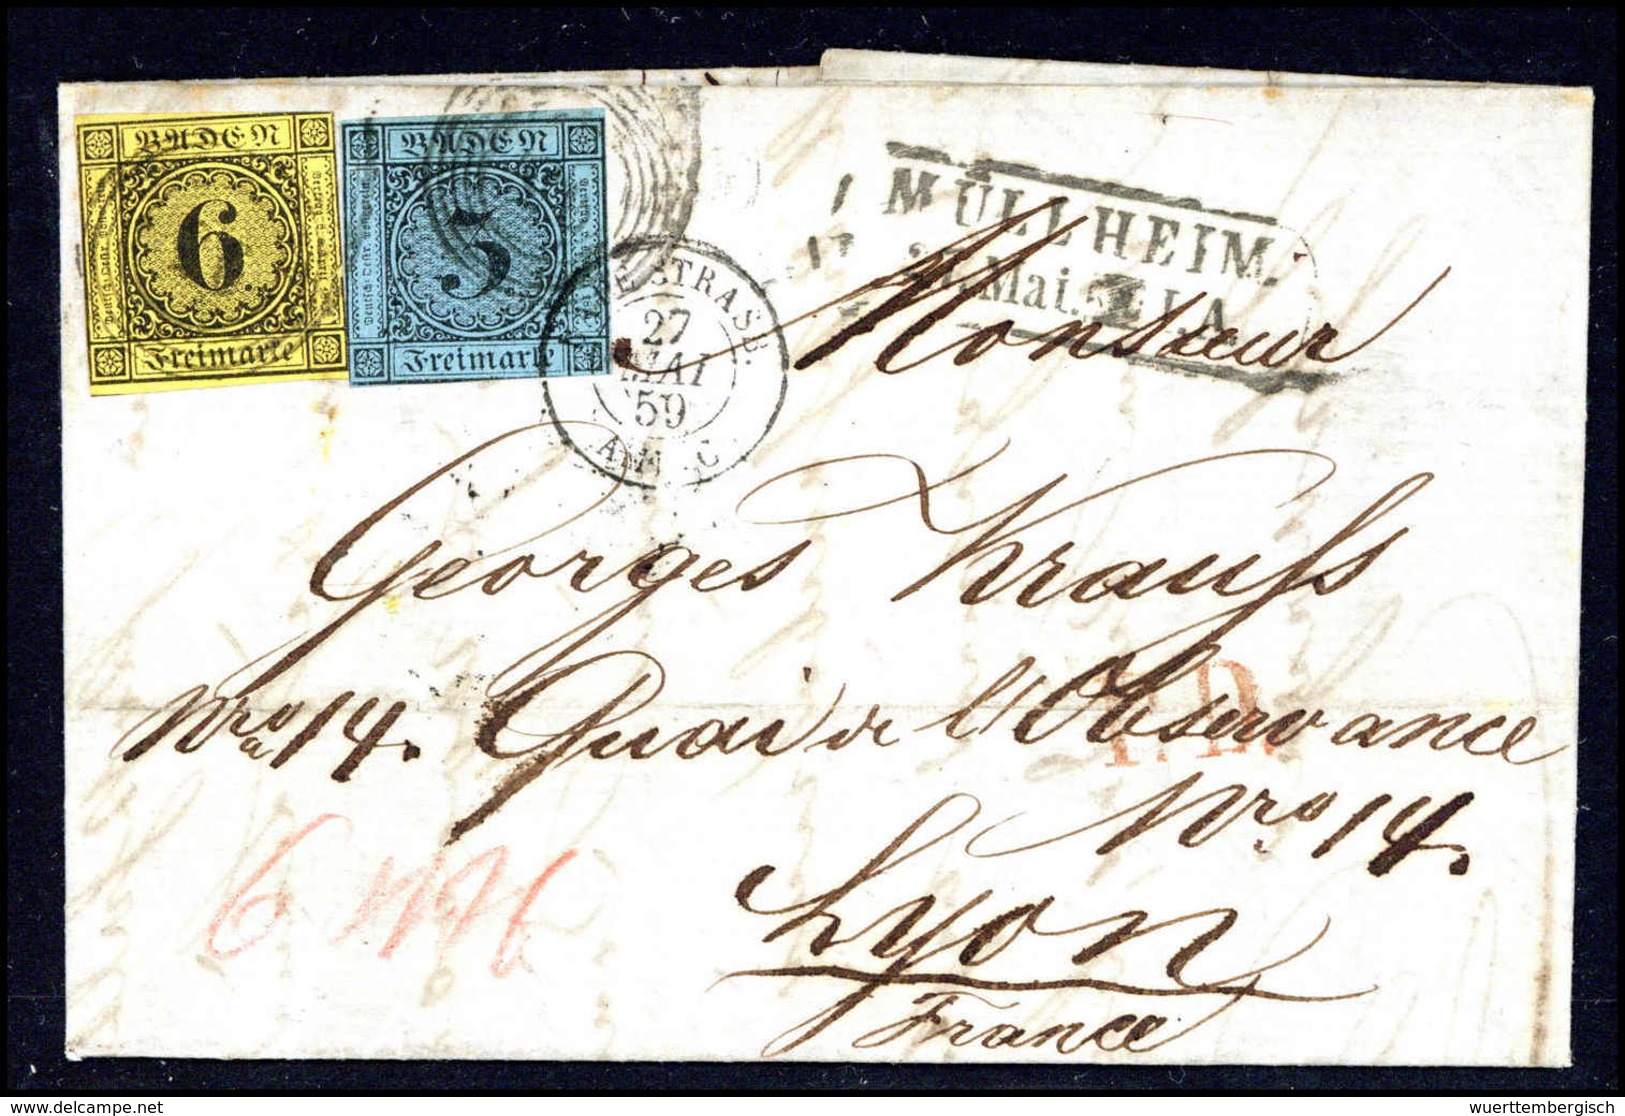 BADEN
6
Freimarke
BADEN
3
Freimarke
MÜLLHEIM.
Mai.
27
MAI
59
Monsieur
Georges Krauss
Nro 14. Quai de l'Observance
P.D.
Nro 14.
Lyon
France
wuerttembergisch